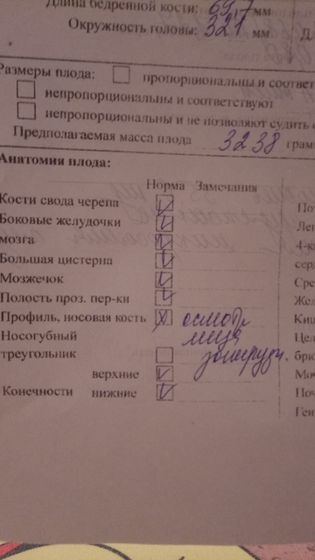 Длина бедренной кости: 69,7 мм
Окружность головы: 321 мм
Размеры плода: пропорциональны и соответ
непропорциональны и соответствуют
непропорциональны и не позволяют судить
Предполагаемая масса плода 3238 грам
Анатомия плода:
Норма Замечания
Кости свода черепа
Боковые желудочки
мозга
Большая цистерна
Мозжечок
Полость проз. пер-ки
Профиль, носовая кость осмотр
Носогубный лица
треугольник затрудн.
верхние
Конечности нижние
По
Лег
4-к
сер
Сре
Же
Ки
Це
брю
Мо
Поч
Ген